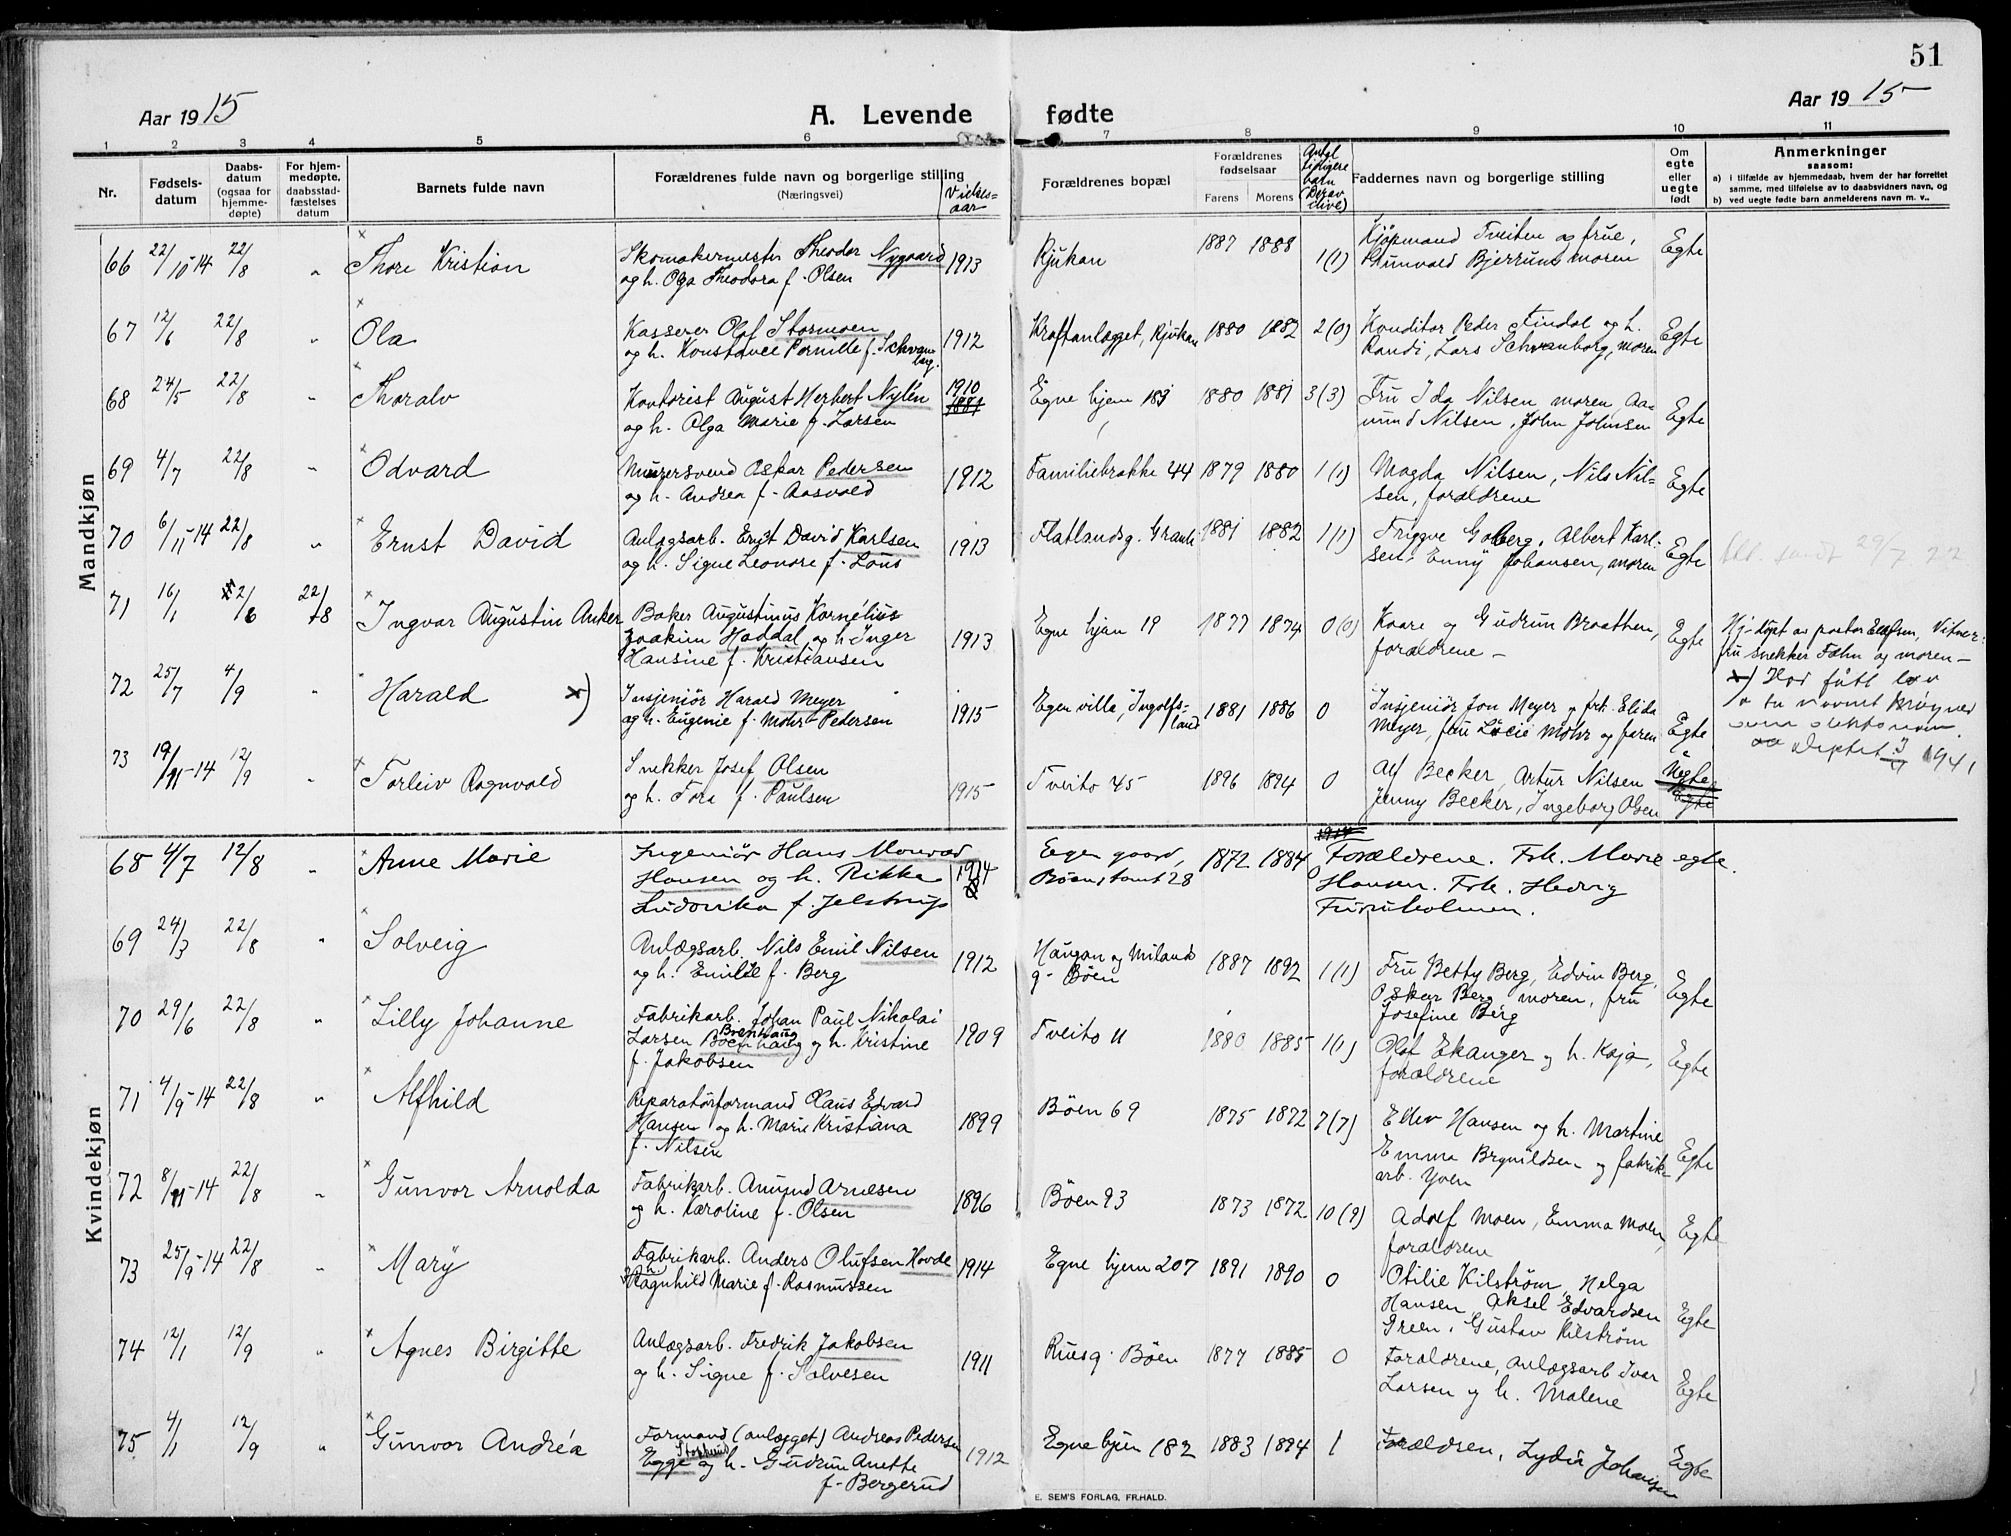 51
Aar 1915 A. Levende fødte Aar 1915
1 2 3 4 5 6 7 8 9 10 11
Nr. Fødsels-datum Daabs-datum (ogsaa for hjemme-døpte) For hjem-medøpte, daabsstad-fæstelses datum Barnets fulde navn Forældrenes fulde navn og borgerlige stilling (Næringsvei) Vielses-aar Forældrenes bopæl Forældrenes fødselsaar Farens Morens Antal tidligere barn (Derav i live) Faddernes navn og borgerlige stilling Om egte eller uegte født Anmerkninger saasom:
a) i tilfælde av hjemmedaab, hvem der har forrettet samme, med tilføielse av to daabsvidners navn, og
b) ved uegte fødte barn anmelderens navn m. v..
Mandkjøn
66 22/10-14 22/8 " Thore Kristian Skomakermester Theodor Nygaard 1913 Rjukan 1887 1888 1(1) Kjøpmand Tveiten og frue, Egte
og h. Olga Theodora f. Olsen Bjerrum moren
67 12/6 22/8 " Ola Kasserer Olaf Stormoen 1912 Kraftanlægget, Rjukan 1880 1882 2(0) Konditor Peder Tindal og h. Egte
og h. Konstance Pernille f. Schvan- Randi, Lars Schvanborg, moren
borg.
68 24/5 22/8 " Thoralv Kontorist August Herbert Nylén 1910 1881 Egne hjem 183 1880 1881 3(3) Fru Ida Nilsen moren, Aa- Egte
og h. Olga Marie f. Larsen mund Nilsen, John Johnsen
69 4/7 22/8 " Odvard Murersvend Oskar Pedersen 1912 Familiebrakke 44 1879 1880 1(1) Magda Nilsen, Nils Nil- Egte
og h. Andrea f. Aasvold sen, forældrene
70 6/11-14 22/8 " Ernst David Anlægsarb. Ernst David Karlsen 1913 Flatlandsg. 1881 1882 1(1) Trygve Goberg, Albert Karl- Egte 29/7 22
og h. Signe Leonore f. Löns sen, Enny Johansen, moren
71 16/1 2/6 22/8 Ingvar Augustin Anker Baker Augustinus Kornélius 1913 Egne hjem 19 1877 1874 0(0) Kaare og Gudrun Braathen, Egte Hj-døpt av pastor Elefsen, Vitner:
Joakim Haddal og h. Inger forældrene - fru snekker Fæhn og moren -
Hansine f. Kristiansen
72 25/7 4/9 " Harald x) Insjeniør Harald Meyer 1915 Egen villa, Ingolfs- 1881 1886 0 Insjeniør Jon Meyer og frk. Elida Egte x) Har fått lov
og h. Eugenie f. Mohr Pedersen land Meyer, fru Lucie Mohr og faren navnet
som slektsnavn.
1941
73 19/11-14 12/9 " Torleiv Ragnvald Snekker Josef Olsen 1915 Tveito 45 1896 1894 0 Alf Becker, Artur Nilsen Uegte
og h. Tora f. Paulsen Jenny Becker, Ingeborg Olsen Egte
Kvindekjøn
68 4/7 12/8 " Anne Marie Ingeniør Hans Monrad 1914 Egen gaard, 1872 1884 0 Forældrene. Frk. Marie egte.
Hansen og h. Rikke Bøen tomt 28 Hansen. Frk. Hedvig
Ludovika f. Jelstrup Furuholmen.
69 24/3 22/8 " Solveig Anlægsarb. Nils Emil Nilsen 1912 Haugan og Milands 1887 1892 1(1) Fru Betty Berg, Edvin Berg, Egte
og h. Emilie f. Berg g. Bøen Oskar Berg moren, fru
Josefine Berg
70 29/6 22/8 " Lilly Johanne Fabrikarb. Johan Paul Nikolai 1909 Tveito 11 1880 1885 1(1) Olaf Ekanger og h. Kaja, Egte
Larsen Brenhaug og h. Kristine forældrene
f. Jakobsen
71 4/9-14 22/8 " Alfhild Reparatørformand Olaus Edvard 1899 Bøen 69 1875 1872 7(7) Ellev Hansen og h. Martine Egte
Hansen og h. Marie Kristiana Emma Brynildsen og fabrik-
f. Nilsen arb. Yven
72 8/11-14 22/8 " Gunvor Arnolda Fabrikarb. Amund Arnesen 1896 Bøen 93 1873 1872 10(9) Adolf Moen, Emma Moen, Egte
og h. Karoline f. Olsen forældrene
73 25/9-14 22/8 " Mary Fabrikarb. Anders Olufsen Hovde 1914 Egne hjem 207 1891 1890 0 Otilie Kilström, Helga Egte
og h. Ragnhild Marie f. Rasmussen Hansen, Aksel Edvardsen
Green, Gustav Kilström
74 12/1 12/9 " Agnes Birgitte Anlægsarb. Fredrik Jakobsen 1911 Ruesg. Bøen 1877 1885 0 Forældrene, anlægsarb Ivar Egte
og h. Signe f. Solvesen Larsen og h. Malene
75 4/1 12/9 " Gunvor Andréa Formand (anlægget) Andreas Pedersen 1912 Egne hjem 182 1883 1894 1 Forældren, Lydia Johansen Egte
Egge og h. Gudrun Anette
f. Bergerud
E. SEM'S FORLAG, FR.HALD.